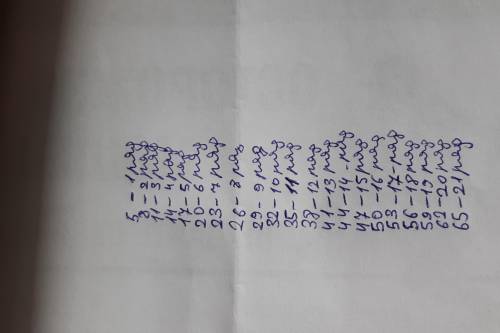 5 - 1 ряд
8 - 2 ряд
11 - 3 ряд
14 - 4 ряд
17 - 5 ряд
20 - 6 ряд
23 - 7 ряд
26 - 8 ряд
29 - 9 ряд
32 - 10 ряд
35 - 11 ряд
38 - 12 ряд
41 - 13 ряд
44 - 14 - ряд
47 - 15 ряд
50 - 16 ряд
53 - 17 - ряд
56 - 18 ряд
59 - 19 ряд
62 - 20 ряд
65 - 21 ряд